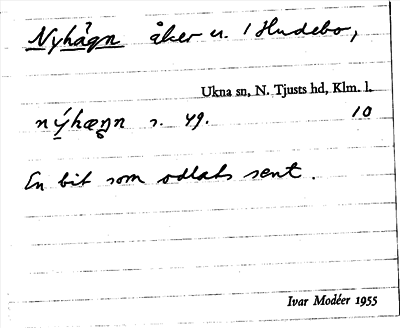 Nyhagn åker u. 1 Hudebo,
Ukna sn, N. Tjusts hd, Klm. l.
nýhæŋn s. 49. 10
En bit som odlats sent.
Ivar Modéer 1955